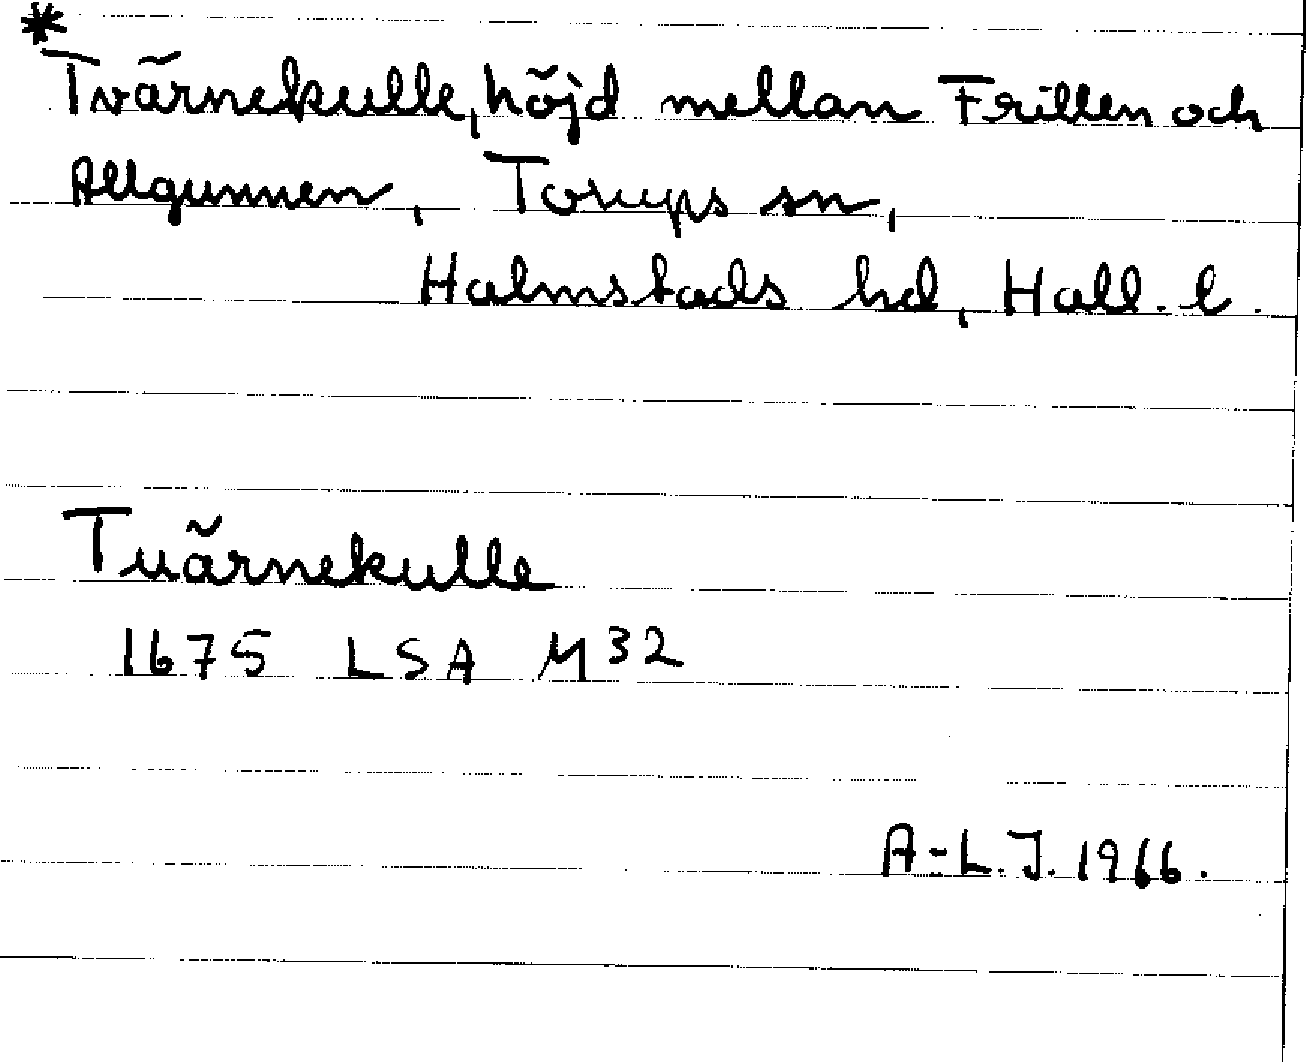 *
Tvärnekulle, höjd mellan Frillen och
Allgunnen, Torups sn,
Halmstads hd, Hall. l.
Tuärnekulle
1675 LSA M32
A-L.J. 1966.